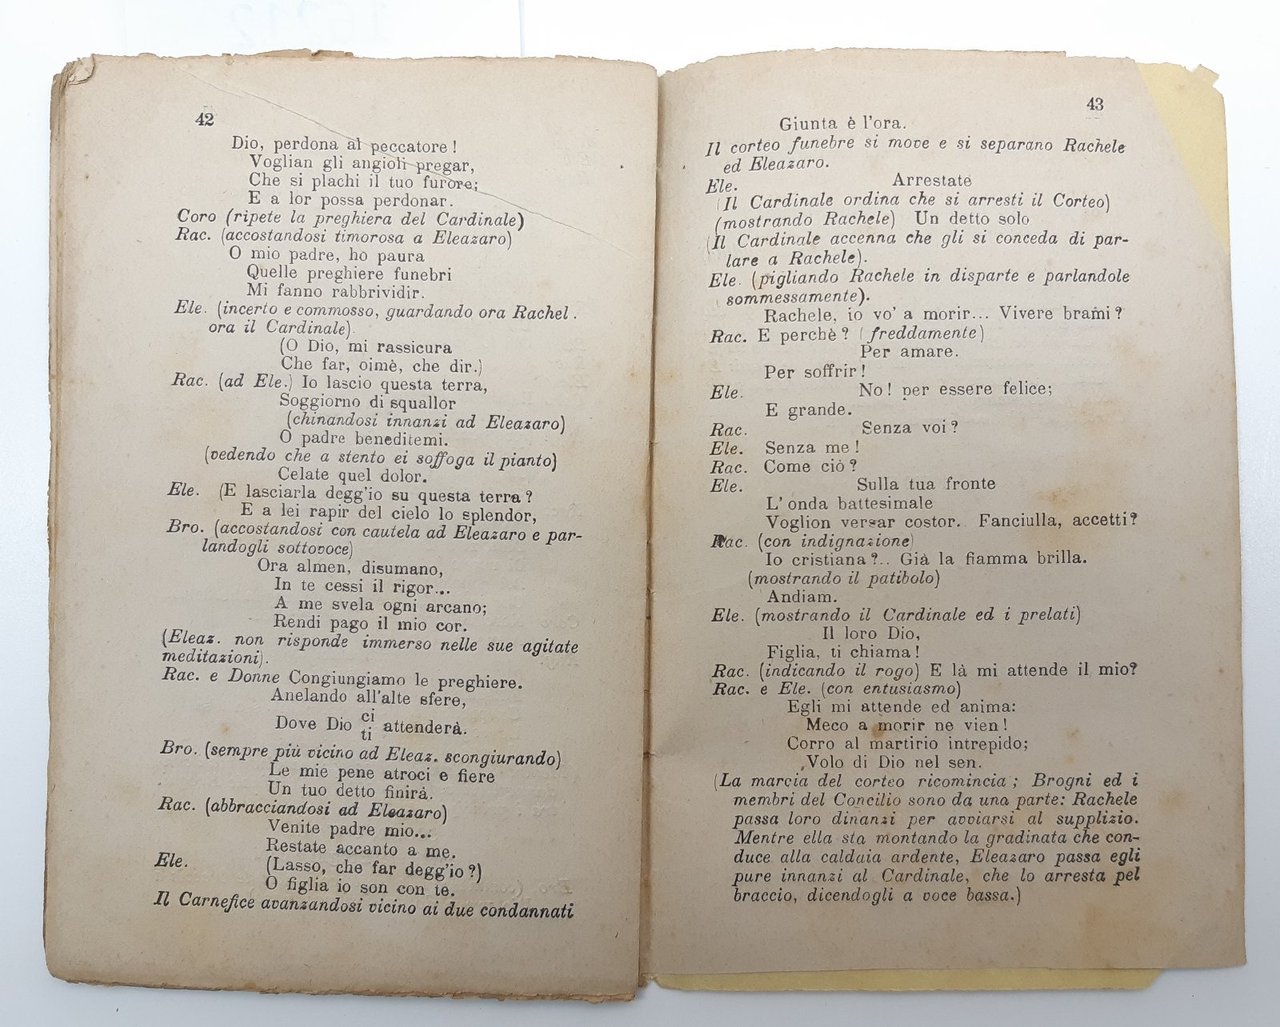 42
Dio, perdona al peccatore !
Voglian gli angioli pregar,
Che si plachi il tuo furore;
E a lor possa perdonar.
Coro (ripete la preghiera del Cardinale)
Rac. (accostandosi timorosa a Eleazaro)
O mio padre, ho paura
Quelle preghiere funebri
Mi fanno rabbrividir.
Ele. (incerto e commosso, guardando ora Rachel .
ora il Cardinale)
(O Dio, mi rassicura
Che far, oimè, che dir.)
Rac. (ad Ele.) Io lascio questa terra,
Soggiorno di squallor
(chinandosi innanzi ad Eleazaro)
O padre beneditemi.
(vedendo che a stento ei soffoga il pianto)
Celate quel dolor.
Ele. (E lasciarla degg'io su questa terra ?
E a lei rapir del cielo lo splendor,
Bro. (accostandosi con cautela ad Eleazaro e par-
landogli sottovoce)
Ora almen, disumano,
In te cessi il rigor...
A me svela ogni arcano;
Rendi pago il mio cor.
(Eleaz. non risponde immerso nelle sue agitate
meditazioni).
Rac. e Donne Congiungiamo le preghiere.
Anelando all'alte sfere,
Dove Dio ci attenderà.
ti
Bro. (sempre più vicino ad Eleaz. scongiurando)
Le mie pene atroci e fiere
Un tuo detto finirà.
Rac. (abbracciandosi ad Eleazaro)
Venite padre mio...
Restate accanto a me.
Ele. (Lasso, che far degg'io ?)
O figlia io son con te.
Il Carnefice avanzandosi vicino ai due condannati
43
Giunta è l'ora.
Il corteo funebre si move e si separano Rachele
ed Eleazaro.
Ele. Arrestate
(Il Cardinale ordina che si arresti il Corteo)
(mostrando Rachele) Un detto solo
(Il Cardinale accenna che gli si conceda di par-
lare a Rachele).
Ele. (pigliando Rachele in disparte e parlandole
sommessamente).
Rachele, io vo' a morir... Vivere brami ?
Rac. E perchè ? (freddamente)
Per amare.
Per soffrir !
Ele. No ! per essere felice;
E grande.
Rac. Senza voi ?
Ele. Senza me !
Rac. Come ciò ?
Ele. Sulla tua fronte
L' onda battesimale
Voglion versar costor. Fanciulla, accetti?
Rac. (con indignazione)
Io cristiana ?.. Già la fiamma brilla.
(mostrando il patibolo)
Andiam.
Ele. (mostrando il Cardinale ed i prelati)
Il loro Dio,
Figlia, ti chiama !
Rac. (indicando il rogo) E là mi attende il mio?
Rac. e Ele. (con entusiasmo)
Egli mi attende ed anima:
Meco a morir ne vien !
Corro al martirio intrepido;
Volo di Dio nel sen.
(La marcia del corteo ricomincia ; Brogni ed i
membri del Concilio sono da una parte: Rachele
passa loro dinanzi per avviarsi al supplizio.
Mentre ella sta montando la gradinata che con-
duce alla caldaia ardente, Eleazaro passa egli
pure innanzi al Cardinale, che lo arresta pel
braccio, dicendogli a voce bassa.)